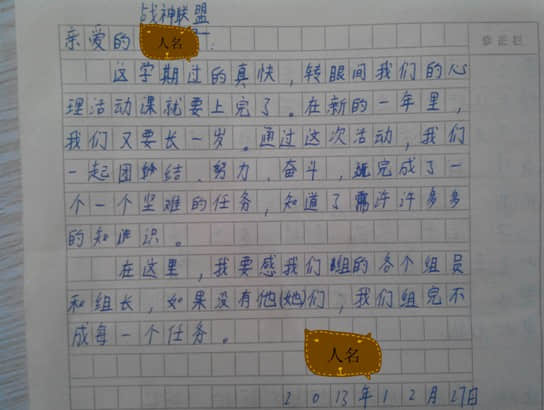 战神联盟
亲爱的 人名 :
这学期过的真快，转眼间我们的心
理活动课就要上完了。在新的一年里，
我们又要长一岁。通过这次活动，我们
一起团结、努力、奋斗，完成了一
个一个坚难的任务，知道了许许多多
的知识。
在这里，我要感我们组的各个组员
和组长，如果没有他(她)们，我们组完不
成每一个任务。
人名
2013年12月27日